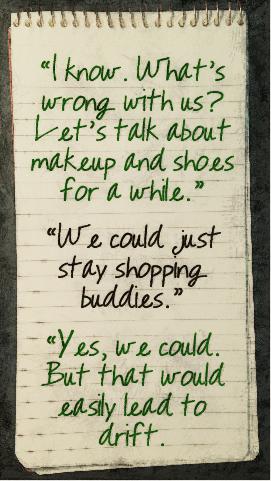 “I know. What’s
wrong with us?
Let’s talk about
makeup and shoes
for a while.”
“We could just
stay shopping
buddies.”
“Yes, we could.
But that would
easily lead to
drift.